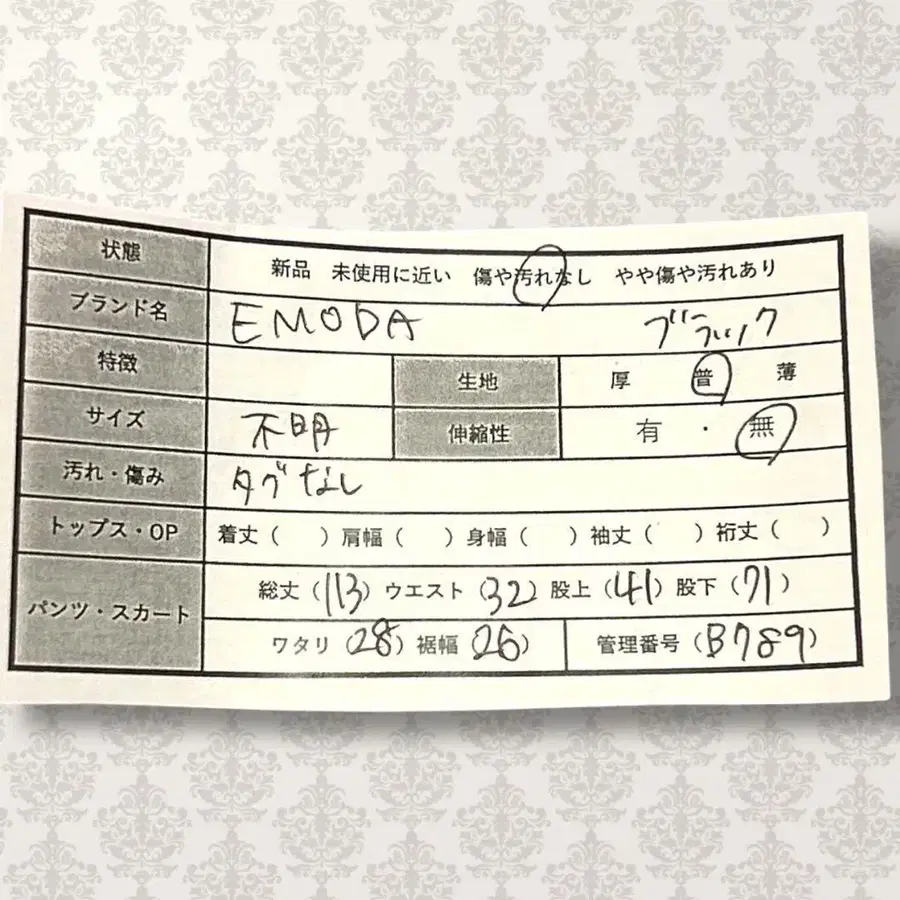 状態 新品 未使用に近い 傷や汚れなし やや傷や汚れあり
ブランド名 EMODA ブラック
特徴 生地 厚 普 薄
サイズ 不明 伸縮性 有 ・ 無
汚れ・傷み タグなし
トップス・OP 着丈( ) 肩幅( ) 身幅( ) 袖丈( ) 裄丈( )
パンツ・スカート 総丈(113) ウエスト(32) 股上(41) 股下(71)
ワタリ(28) 裾幅(26) 管理番号(B789)